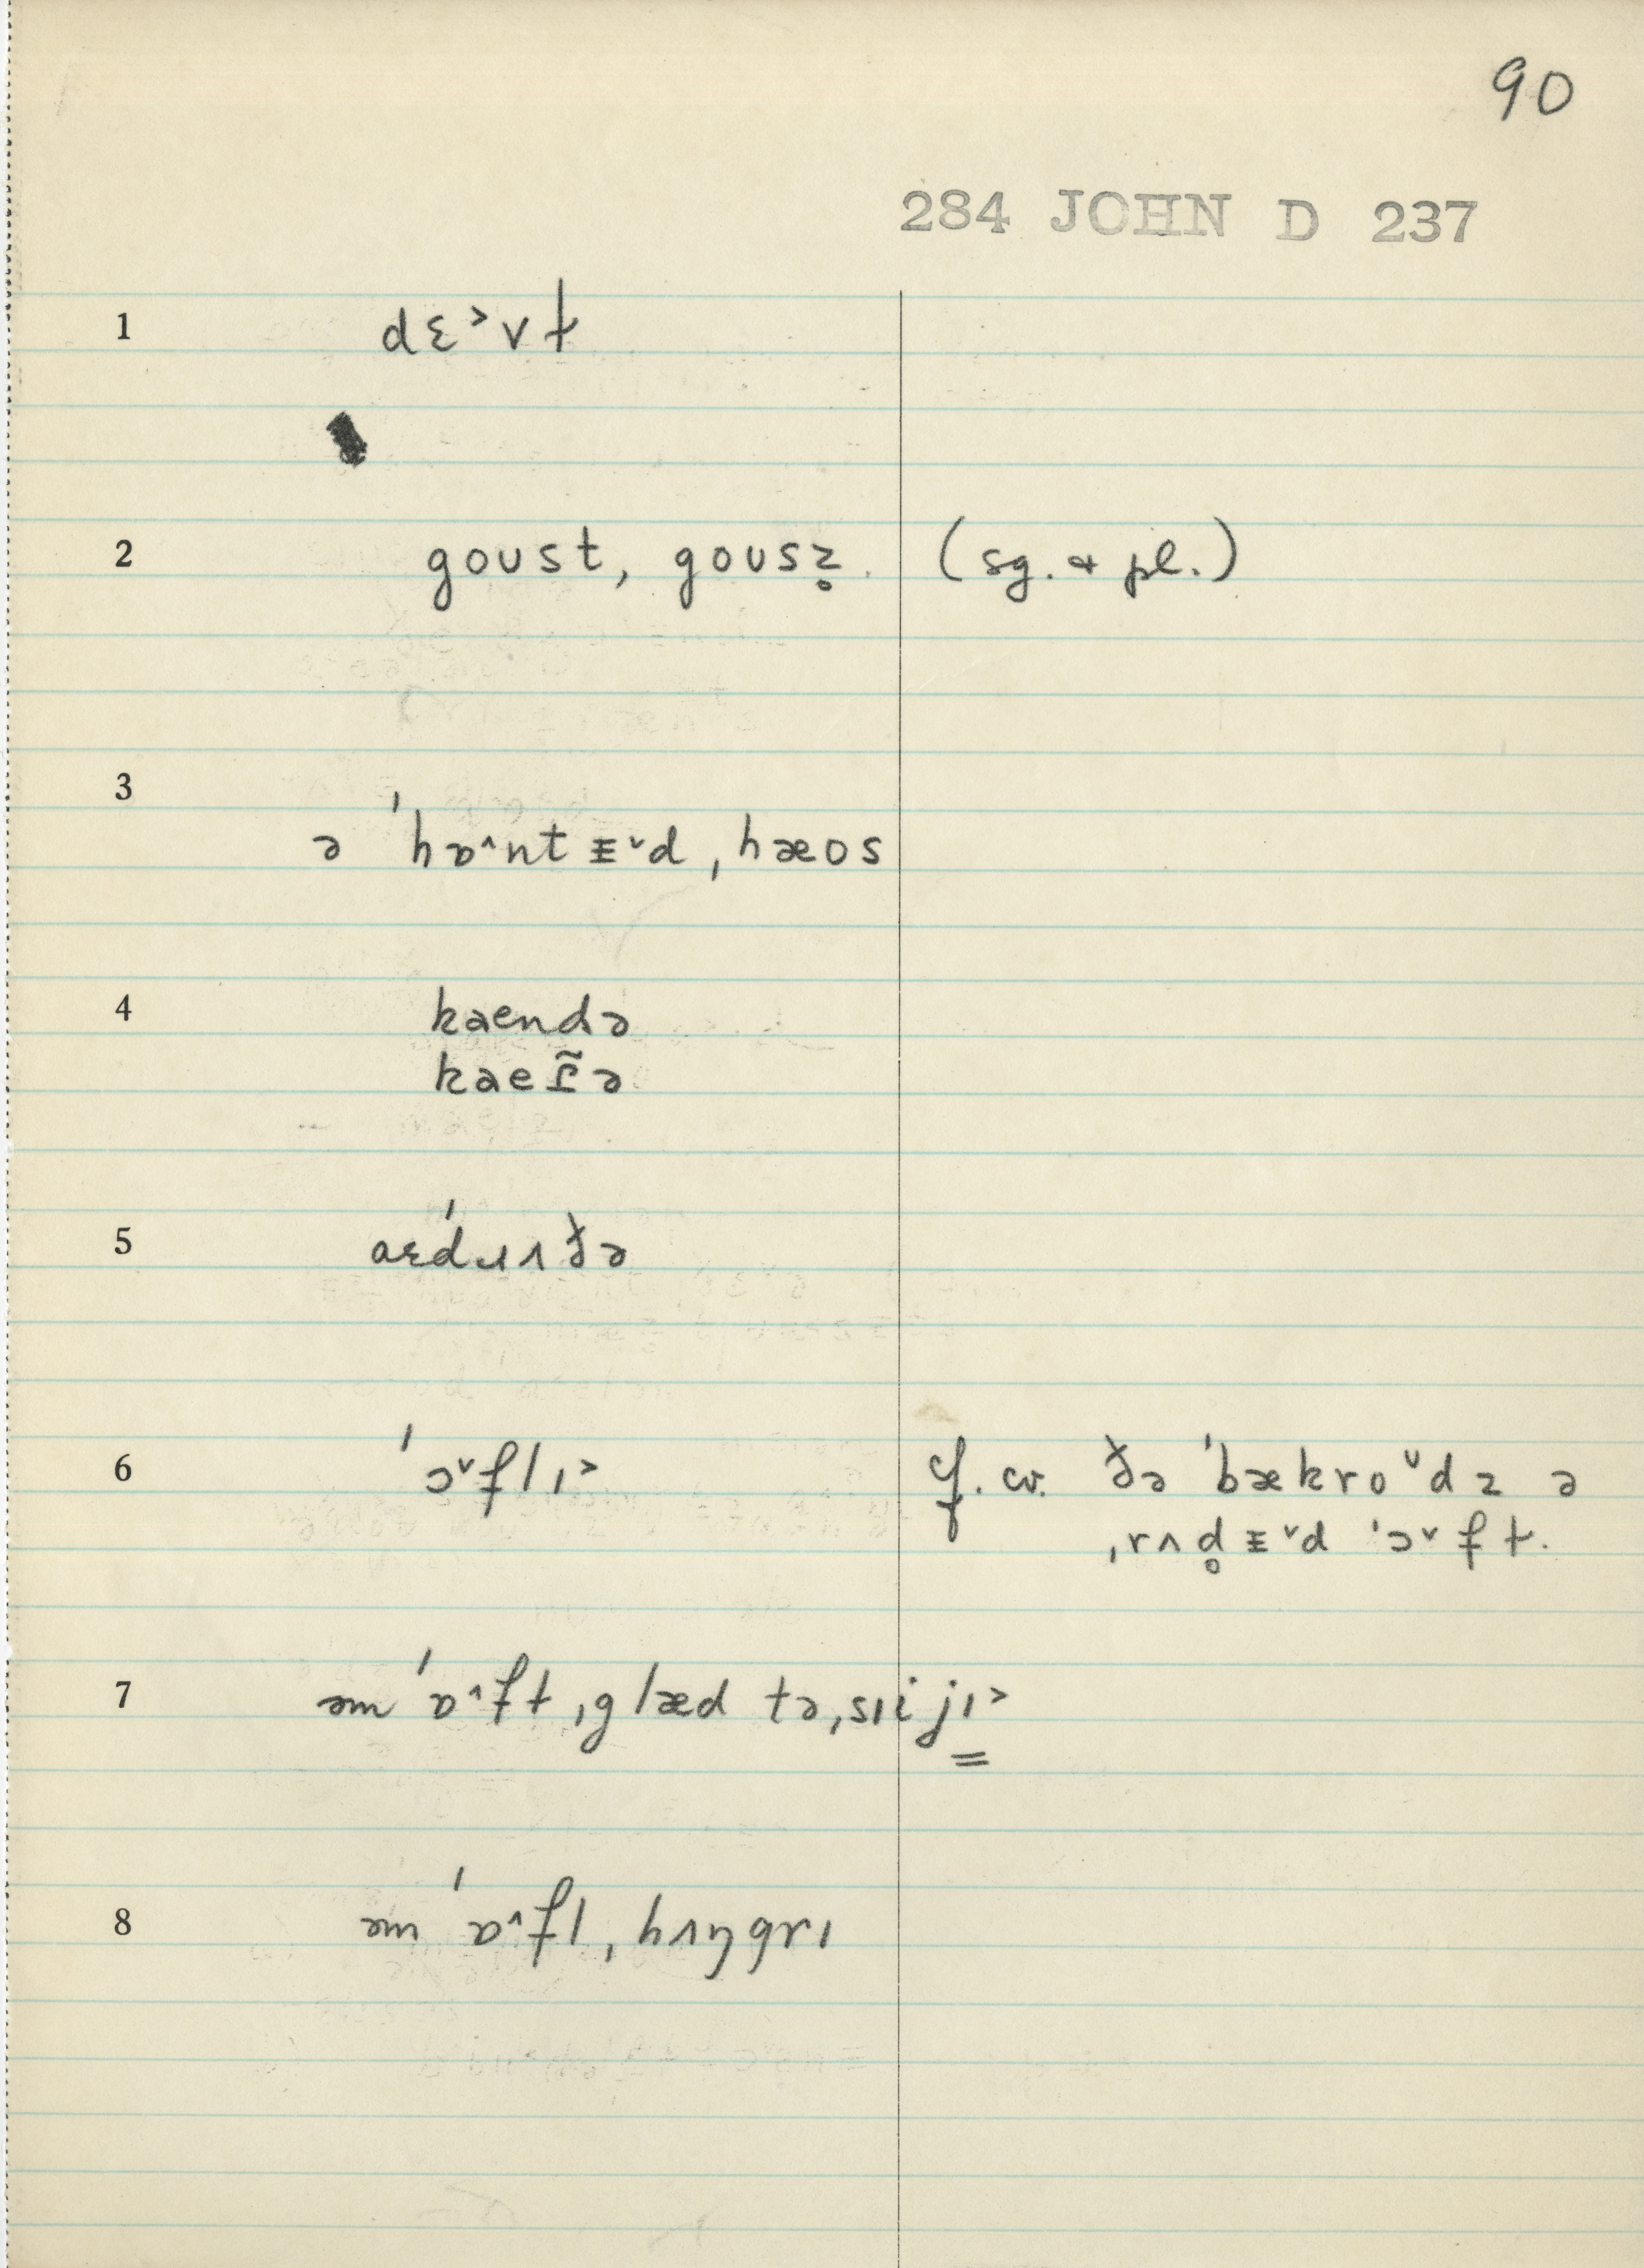 90
284 JOHN D 237
1 dɛ˃vɫ
2 goʊst, goʊsz̥ (sg. & pl.)
3 ə ˈhɒ˄ntᵻ˅d ˌhæos
4 kaendə
kaeɾ̃ə
5 aɛˈdɹʌðə
6 ˈɔ˅flɪ˃ cf. cv. ðə ˈbækro˅dz ə
ˌrʌd̥ᵻ˅d ˈɔ˅fɫ.
7 əm ˈɒ˄fɫ ˌglæd tə ˌsɪijɪ˃
8 əm ˈɒ˄fl ˌhʌŋgrɪ